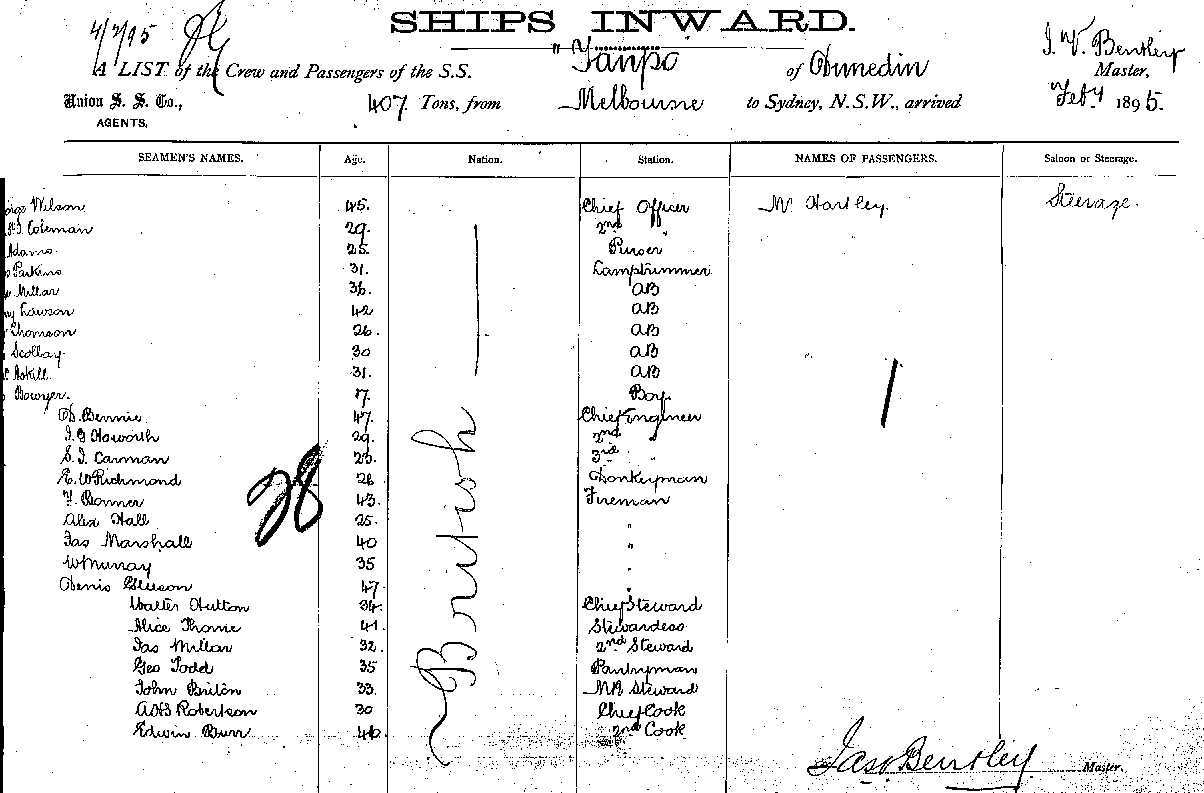 SHIPS INWARD.
4/2/95
A LIST of the Crew and Passengers of the S.S. "Taupo of Dunedin J. V. Bentley Master,
Union S. S. Co., AGENTS, 407 Tons, from Melbourne to Sydney, N.S.W., arrived Feby 1895.
SEAMEN'S NAMES. Age. Nation. Station. NAMES OF PASSENGERS. Saloon or Steerage.
Wilson 45. Chief Officer Mr Hartley. Steerage.
Coleman 29. 2nd "
Adams 25. Purser
Parkins 31. Lamptrimmer
Millar 36. AB
Lawson 42 AB
Thomson 26. AB
Scollay 30 AB
Askill 31. AB
Bowyer. 17. Boy
D. Bennie 47. Chief Engineer
J. G Haworth 29. 2nd "
S. J. Carman 23. 3rd "
E. W Richmond 26 Donkeyman
Bonner 43. Fireman
Alex Hall 25. "
Jas Marshall 40 "
W Murray 35 "
Denis Gleeson 47. "
Walter Hutton 34. Chief Steward
Alice Thorne 41. Stewardess
Jas Millar 32. 2nd Steward
Geo Todd 35 Pantryman
John 33. Steward
Robertson 30 Chief Cook
Edwin Burr 46. 2nd Cook
British
28
1
Jas Bentley Master.